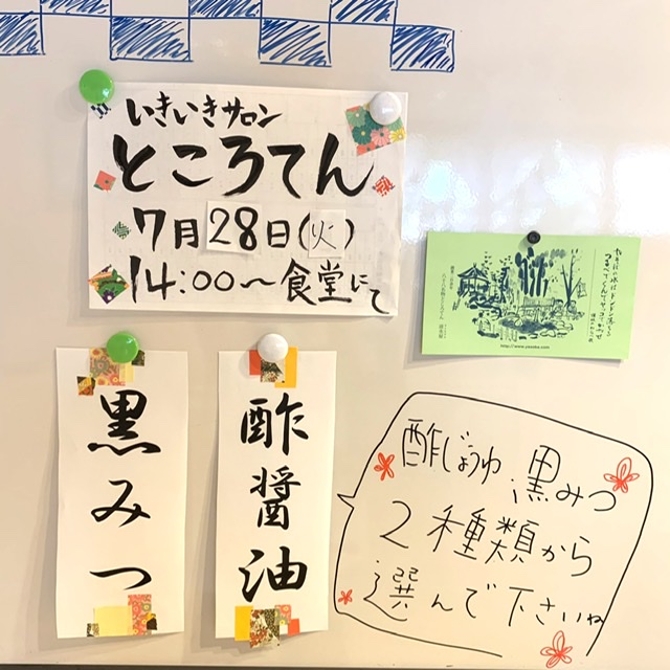 いきいきサロン
ところてん
7月28日(火)
14:00〜食堂にて
黒みつ
酢醤油
http://www.yazoka.com
酢じょうゆ 黒みつ
2種類から
選んで下さいね